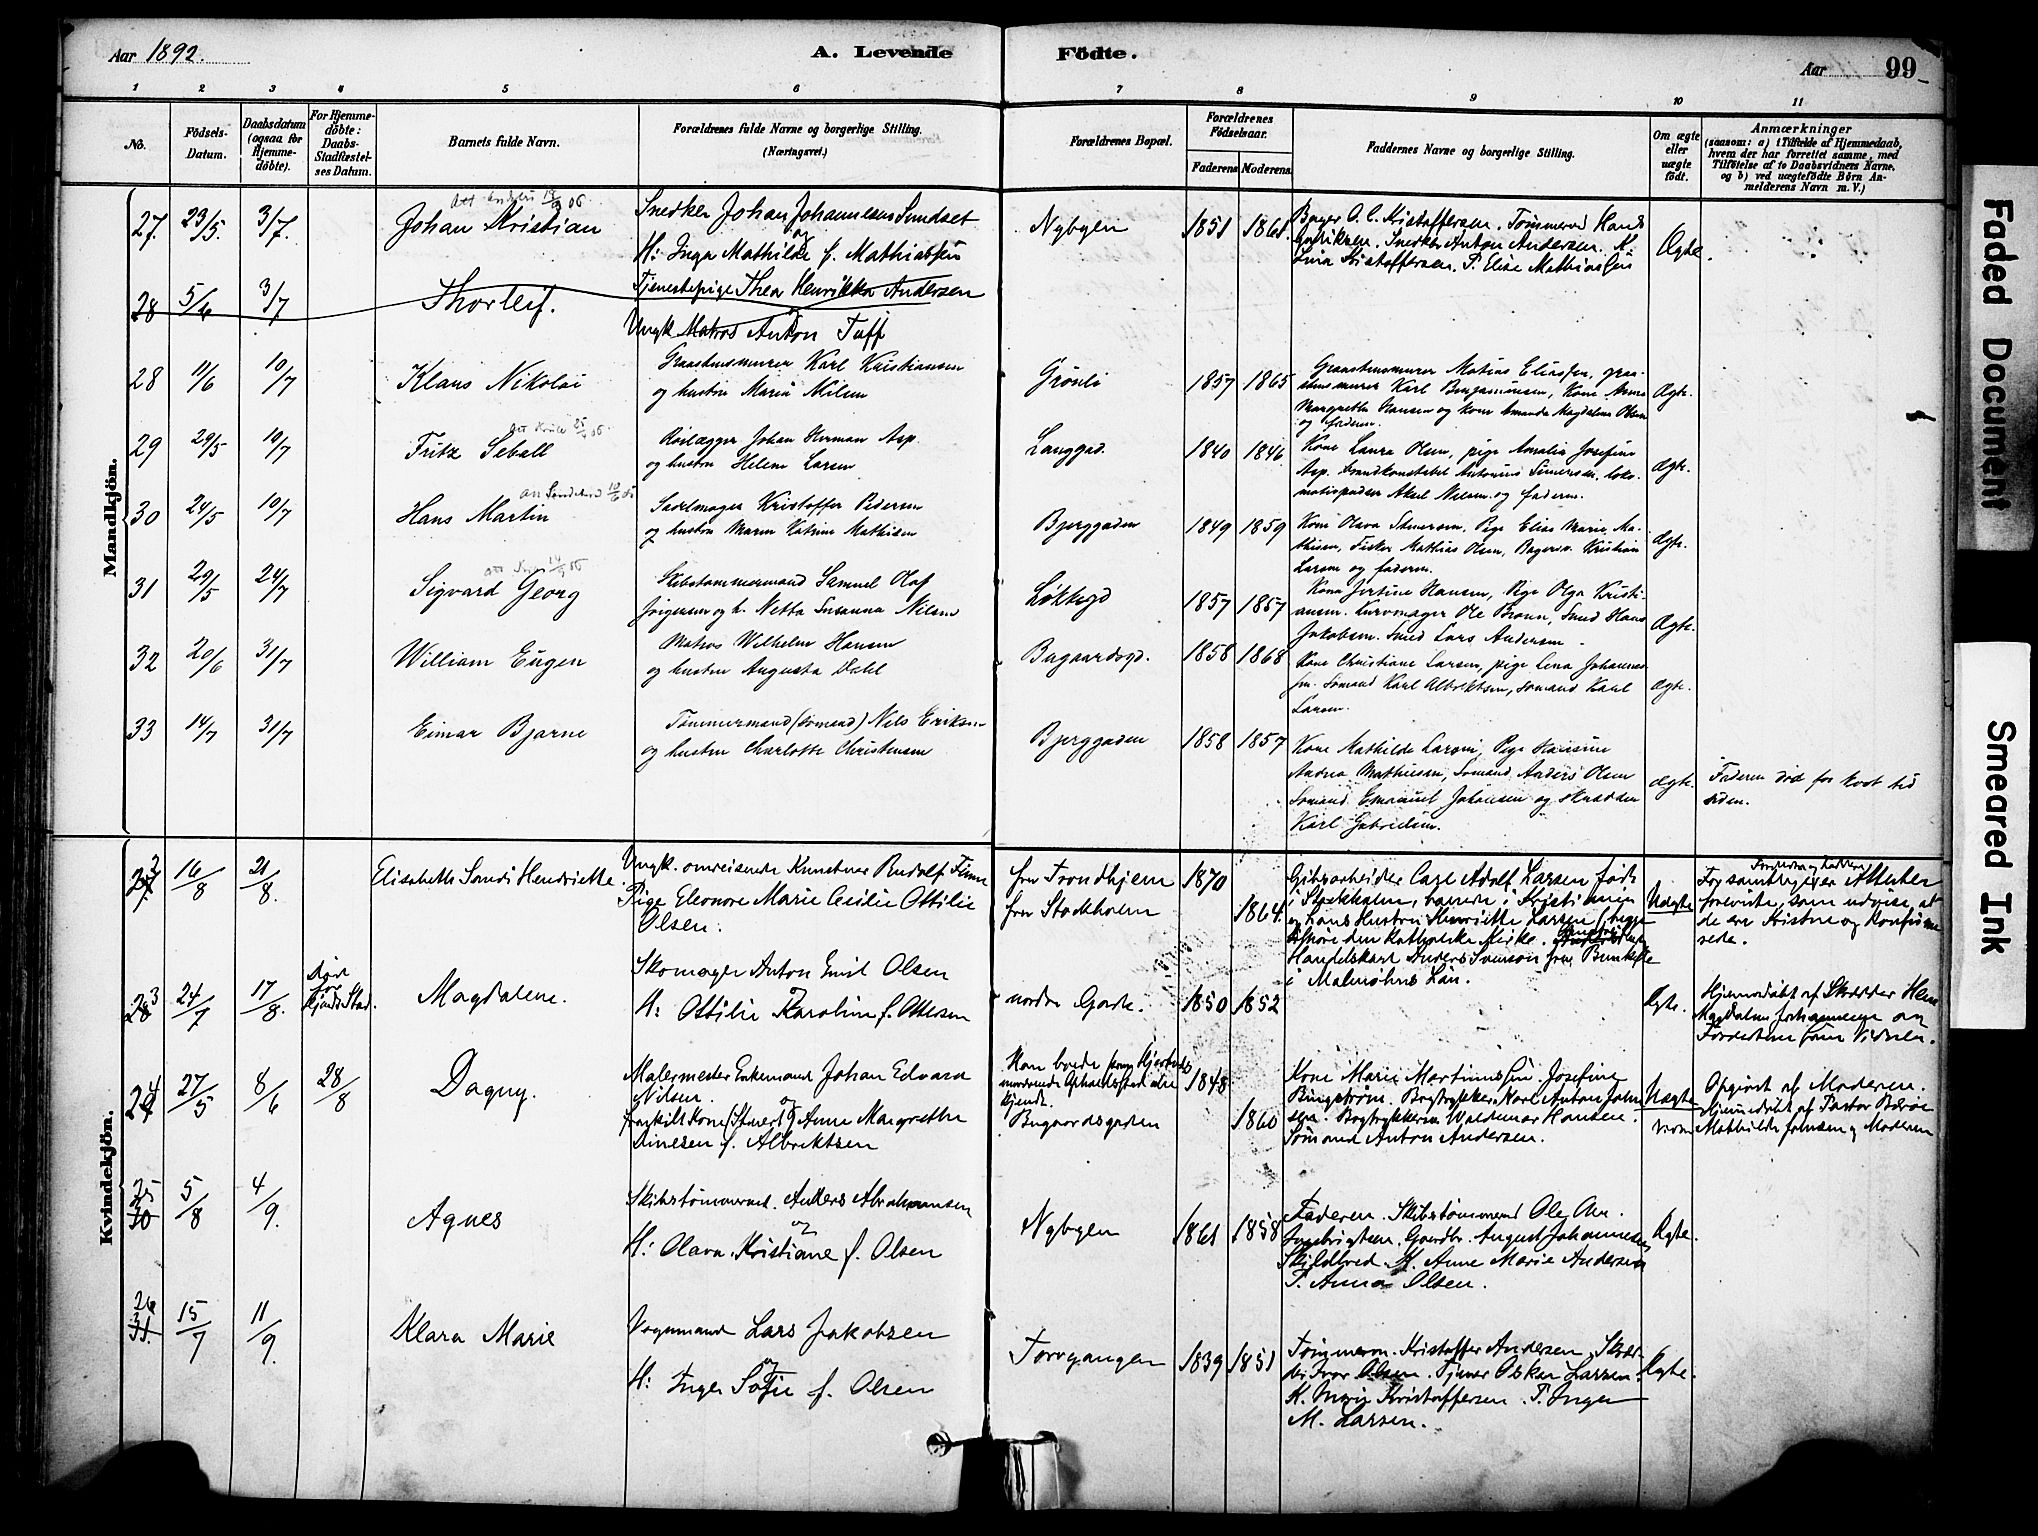 Aar 1892.
A. Levende Födte.
Aar 99
1 2 3 4 5 6 7 8 9 10 11
No.
Födsels-Datum.
Daabsdatum (ogsaa for Hjemmedöbte).
For Hjemmedöbte: Daabs-Stadfæstelses Datum.
Barnets fulde Navn.
Forældrenes fulde Navne og borgerlige Stilling.
(Næringsvei.)
Forældrenes Bopæl.
Forældrenes Födselsaar.
Faderens Moderens
Faddernes Navne og borgerlige Stilling.
Om ægte eller uægte födt.
Anmærkninger
(saasom: a) i Tilfælde af Hjemmedaab, hvem der har forrettet samme, med Tilföielse af to Daabsvidners Navne, og b) ved uægtefödte Börn Anmelderens Navn m. V.)
Mandkjön.
27. 23/5. 3/7. Johan Kristian
Snedker Johan Johannesen Sundset
og
H: Inga Mathilde f. Mathiassen
Nybyen 1851 1861
Bager O. C. Kristoffersen. Tømmermd Hans
Snedker Anton Andersen. K.
Kristoffersen. P. Elise Mathiassen
Ægte.
28 5/6 3/7 Thorleif.
Tjenestepige Thea Henrikka Andersen
Ungk Matros Anton Tuff
28 11/6 10/7 Klaus Nikolai
Graastensmurer Karl Kristiansen
og hustru Maria Nilsen
Grönli 1857 1865
Graastensmurer Matias Eliassen, graa-
stensmurer Karl Benjaminsen, Kone Anna
Margrethe Hansen og kone Amanda Magdalena Olsen
og faderen.
Ægte.
29 29/5 10/7 Fritz Seball
Johan Herman Asp
og hustru Helene Larsen
Langgad. 1840 1846
Kone Laura Olsen, pige Amalia Josefine
Asp. brandkonstabel Antonius Simensen, loko-
motivpudser Aksel Nilsen og faderen.
Ægte.
30 24/5 10/7 Hans Martin
Sadelmager Kristoffer Pedersen
og hustru Maren Katrine Mathisen
Bjerggaden 1849 1859
Kone Olava Simensen. Pige Elise Marie Ma-
thisen, Fisker Mathias Olsen, Bagersv. Kristian
Larsen og faderen.
Ægte.
31 29/5 24/7 Sigvard Georg
Skibstømmermand Samuel Olaf
Jørgensen og h. Netta Susanna Nilsen
Løkkegd 1857 1857
Kone Jertine Hansen, Pige Olga Kristi-
ansen. Kurvmager Ole Braun, Smed Hans
Jakobsen. Smed Lars Andersen
Ægte.
32 20/6 31/7 William Eugen
Matros Wilhelm Hansen
og hustru Augusta Dahl
Bugaardsgd. 1858 1868
Kone Christiane Larsen, pige Lena Johannes-
sen. Sømand Karl Albriktsen, sømand Karl
Larsen.
Ægte.
33 14/7 31/7 Einar Bjarne
Tømmermand (sømand) Nils Eriksen
og hustru Charlotte Christensen
Bjerggaden 1858 1857
Kone Mathilde Larsen, Pige Hansine
Andrea Mathiesen, Sømand Anders Olsen
Sømand Emanuel Johansen og skrædder
Karl Gabrielsen.
Ægte.
Faderen død for kort tid
siden.
Kvindekjön.
16/8 21/8. Elisabeth Sandi Henriette.
Ungk. omreisende Kunstner Rudolf Finne
Pige Eleonore Marie Cecilie Ottilie
Olsen.
fra Trondhjem 1870
fra Stockholm 1864.
Gibsarbeider Carl Adolf Larsen født
i Stockholm, boende i Kristiania
og hans Hustru Henriette Larsen (begge
tilhøre den katholske Kirke.
Handelskarl Anders Svenson fra Bunkeflo
i Malmøhus Län.
Uægte
Attester
foreviste, som udviser at
de ere Kristne og konfirme-
rede.
23 24/7 17/8. Magdalene.
Skomager Anton Emil Olsen
og
H: Ottilie Karoline f. Ottersen
nordre Gade. 1850 1852
Ægte.
Hjemmedøbt af Skrædder
24 27/5 8/6 28/8 Dagny.
Malermester Enkemand Johan Edvard
Nilsen.
og
fraskilt Kone Anne Margrethe
Dinesen f. Albriktsen
kjendt.
Bugaardsgaden
1848 1860
Kone Marie Martinussen. Josefine
Ringstrøm. Bogtrykker Karl Anton John-
sen. Bogtrykkersv. Waldemar Hansen.
Sømand Anton Andersen.
Uægte
Opgivet af Moderen.
Hjemmedøbt af Pastor
Mathilde Johnsen og Moderen
25 30 5/8 4/9. Agnes
Skibstømmermd. Anders Abrahamsen
og
H: Olava Kristiane f. Olsen
Nybyen 1861 1858
Faderen. Skibstømmermd Ole Chr.
Ingebrigtsen. Gaardbr. August Johannesen
Skjildbred. K. Anne Marie Andersen
P. Anna Olsen.
Ægte.
26 31. 15/7 11/9. Klara Marie
Vognmand Lars Jakobsen
og
H: Inger Sofie f. Olsen
Torvgangen 1839 1851
Tømmerm. Kristoffer Andersen. Skræd-
der Ivar Olsen. Tjener Oskar Larsen.
K. Marie Kristoffersen. P. Inga
M. Larsen.
Ægte.
Faded Document
Smeared Ink